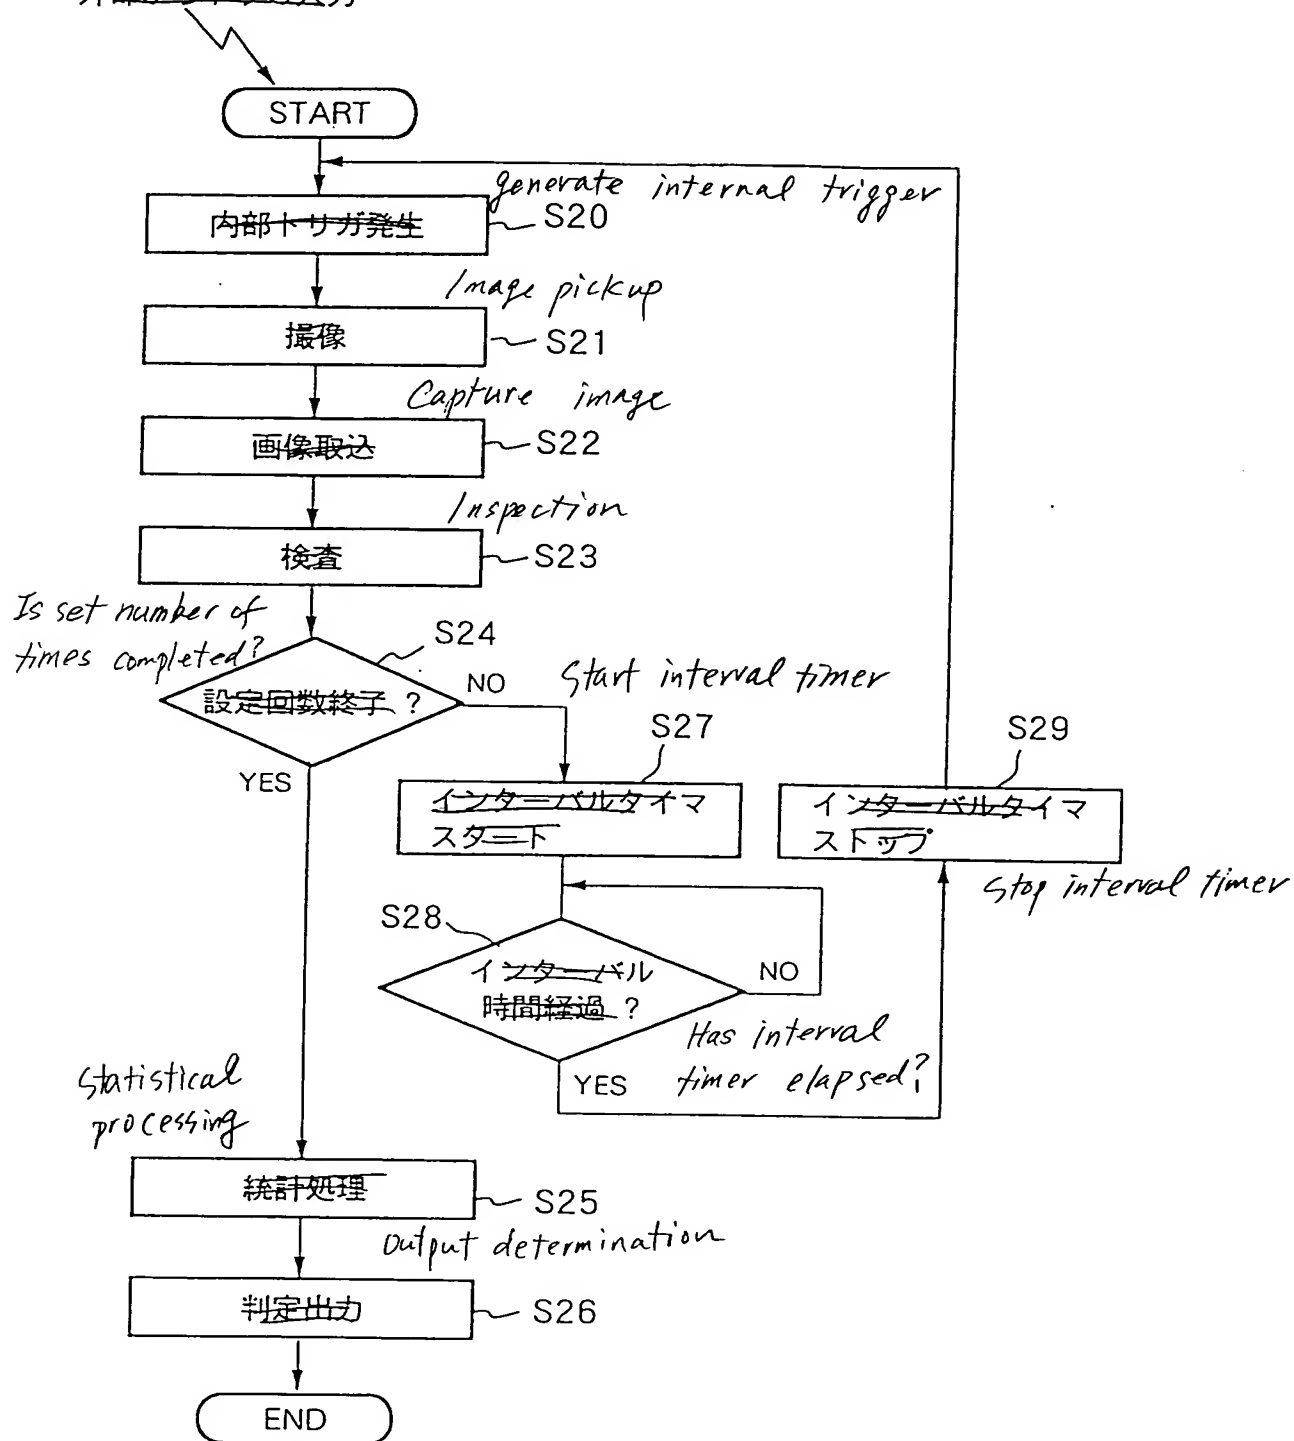 START
generate internal trigger
内部トリガ発生
S20
Image pickup
撮像
S21
Capture image
画像取込
S22
Inspection
検査
S23
Is set number of
times completed?
S24
設定回数終了 ?
NO
YES
Start interval timer
S27
インターバルタイマ
スタート
S29
インターバルタイマ
ストップ
Stop interval timer
S28
インターバル
時間経過 ?
NO
YES
Has interval
timer elapsed?
Statistical
processing
統計処理
S25
Output determination
判定出力
S26
END